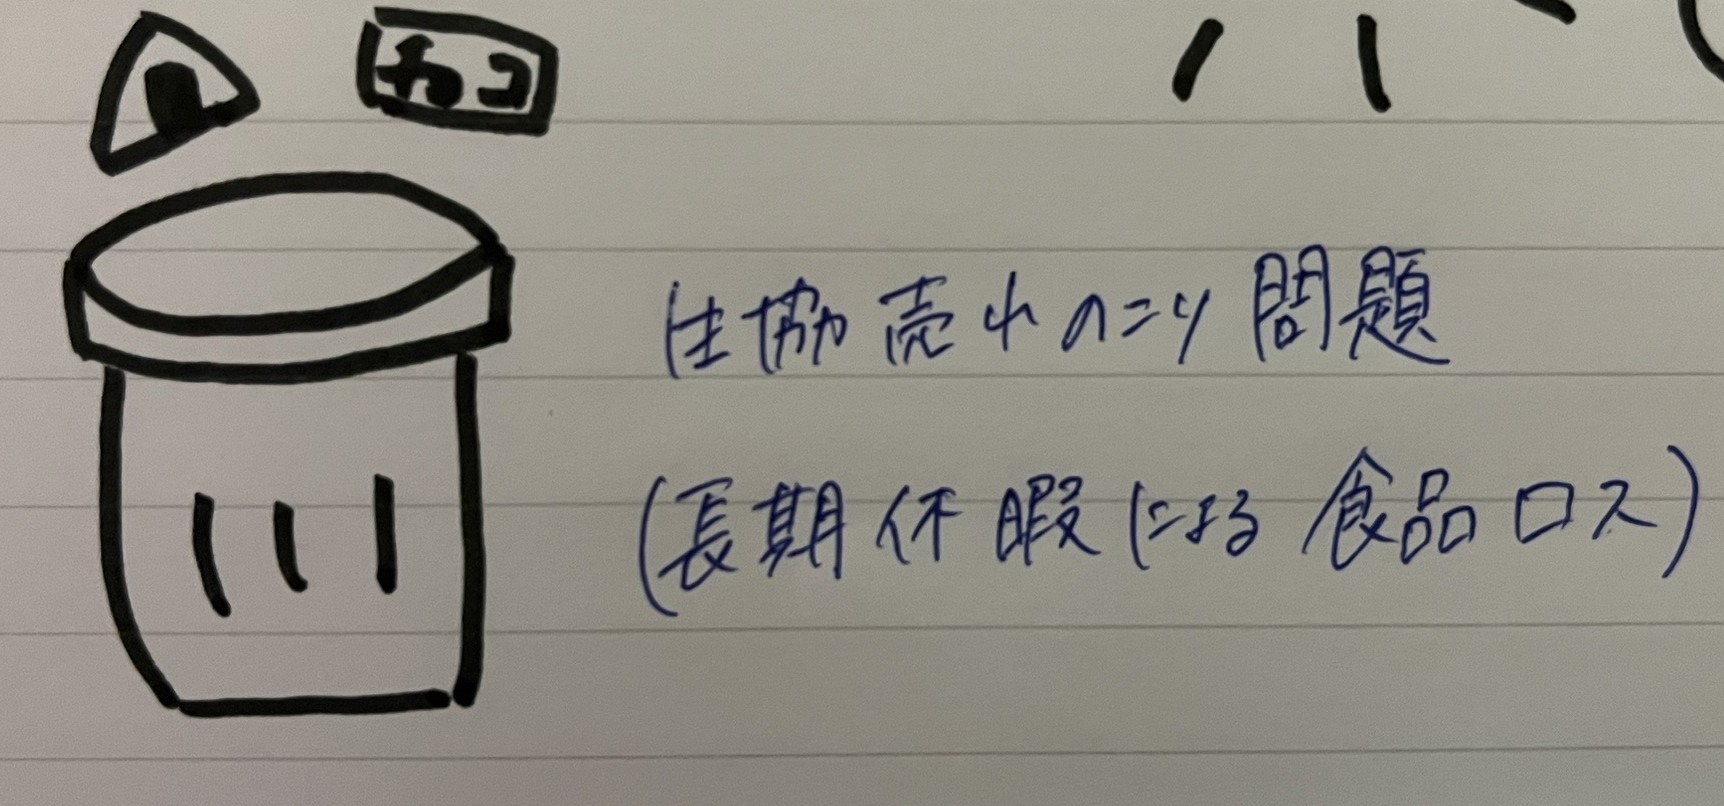 チョコ
生協売れのこり問題
(長期休暇による食品ロス)